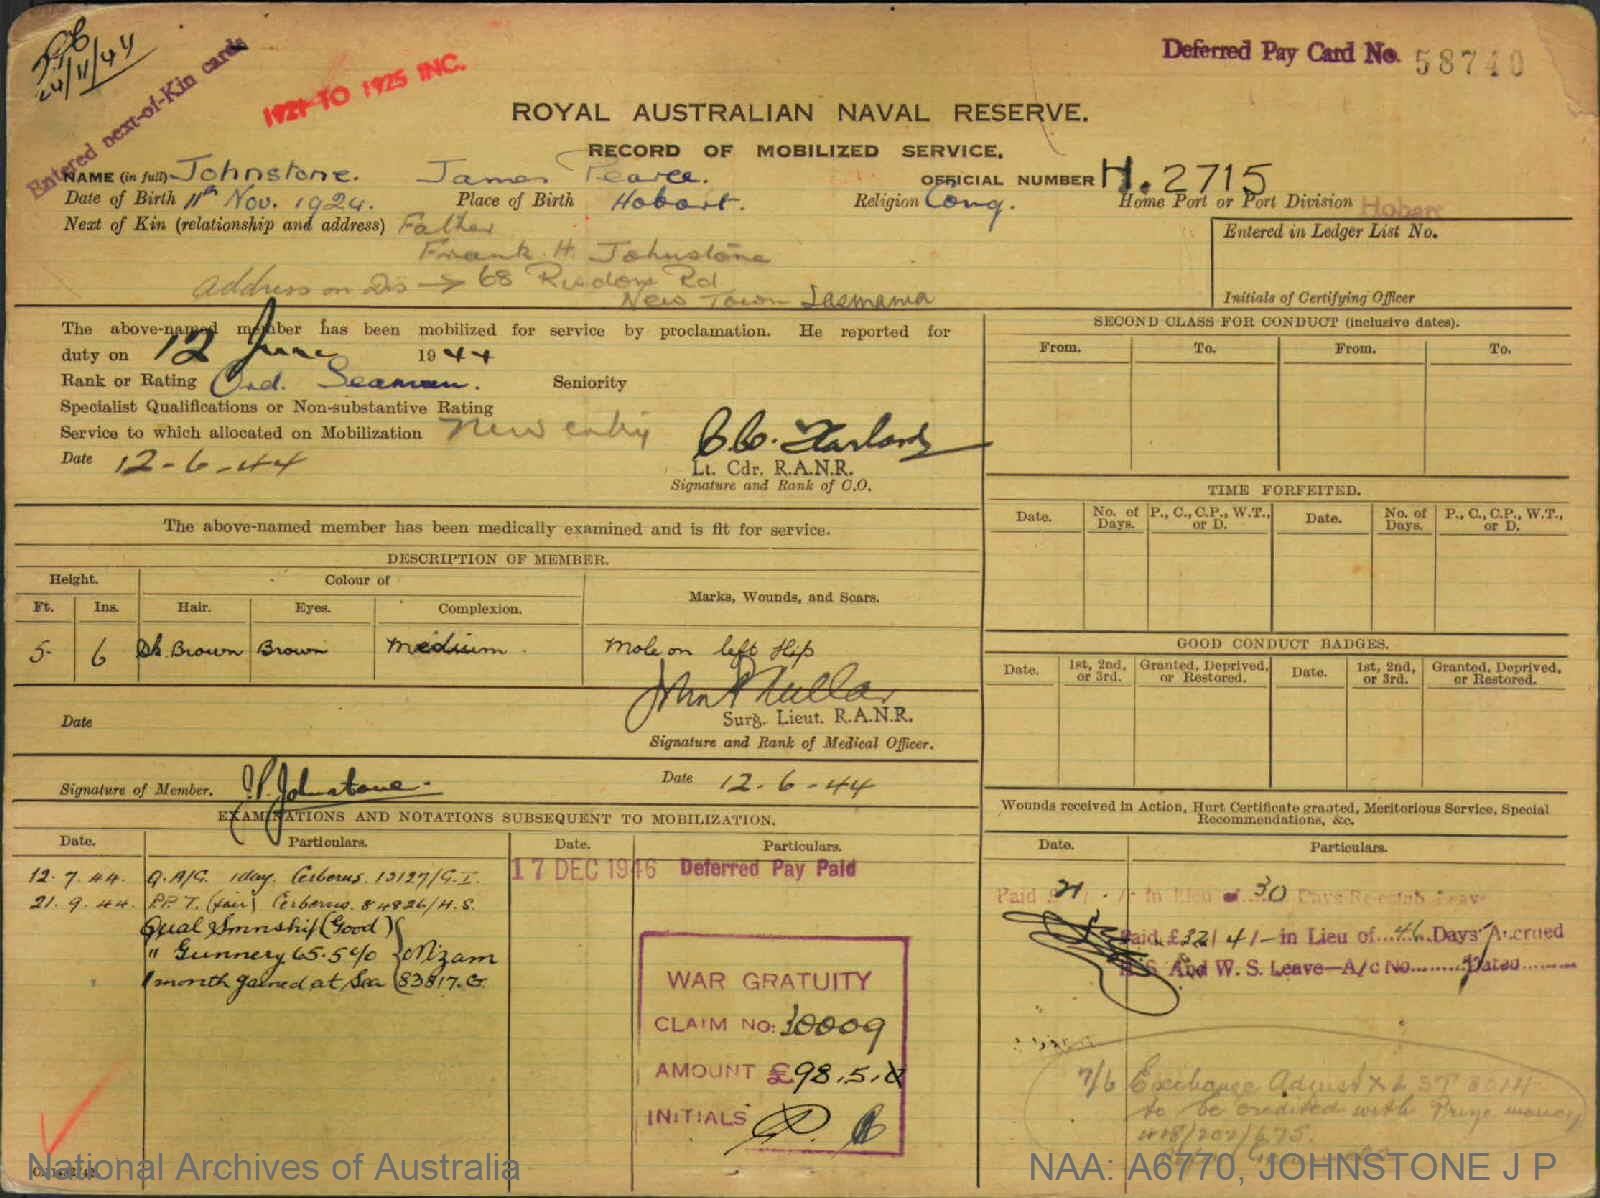 24/11/44
Entered next-of-Kin cards
1921 TO 1925 INC.
Deferred Pay Card No. 58740
ROYAL AUSTRALIAN NAVAL RESERVE.
RECORD OF MOBILIZED SERVICE.
NAME (in full) Johnstone. James Pearce. OFFICIAL NUMBER H. 2715
Date of Birth 11th Nov. 1924. Place of Birth Hobart. Religion Cong. Home Port or Port Division Hobart
Next of Kin (relationship and address) Father
Frank H. Johnstone
Address on Dis → 68 Risdon Rd
New Town Tasmania
Entered in Ledger List No.
Initials of Certifying Officer
The above-named member has been mobilized for service by proclamation. He reported for
duty on 12 June 1944
Rank or Rating Ord. Seaman. Seniority
Specialist Qualifications or Non-substantive Rating
Service to which allocated on Mobilization New entry
Date 12-6-44
Lt. Cdr. R.A.N.R.
Signature and Rank of C.O.
SECOND CLASS FOR CONDUCT (inclusive dates).
From. To. From. To.
The above-named member has been medically examined and is fit for service.
TIME FORFEITED.
Date. No. of Days. P., C., C.P., W.T., or D. Date. No. of Days. P., C., C.P., W.T., or D.
DESCRIPTION OF MEMBER.
Height. Colour of Marks, Wounds, and Scars.
Ft. Ins. Hair. Eyes. Complexion.
5 6 Dk Brown Brown Medium. Mole on left Hip
Surg. Lieut. R.A.N.R.
Date
Signature and Rank of Medical Officer.
Signature of Member. J.P. Johnstone. Date 12-6-44
GOOD CONDUCT BADGES.
Date. 1st, 2nd, or 3rd. Granted, Deprived, or Restored. Date. 1st, 2nd, or 3rd. Granted, Deprived, or Restored.
EXAMINATIONS AND NOTATIONS SUBSEQUENT TO MOBILIZATION.
Date. Particulars. Date. Particulars.
12.7.44. Q.A/G. 1day. Cerberus. 13127/G.I.
21.9.44. P.P.T. (fair) Cerberus. 84826/H.S.
Qual Smnship (Good)
" Gunnery 65.5% Nizam
1 month gained at Sea 83817.G.
17 DEC 1946 Deferred Pay Paid
WAR GRATUITY
CLAIM NO: 10009
AMOUNT £98.5.0
INITIALS
Wounds received in Action, Hurt Certificate granted, Meritorious Service, Special
Recommendations, &c.
Date. Particulars.
Paid £21 In Lieu of 30 Days Re-estab Leave
Paid £32/4/- in Lieu of 46 Days Accrued
And W. S. Leave—A/c No. Dated
7/6 Exchange Adjust
to be credited with Prize money
National Archives of Australia
NAA: A6770, JOHNSTONE J P